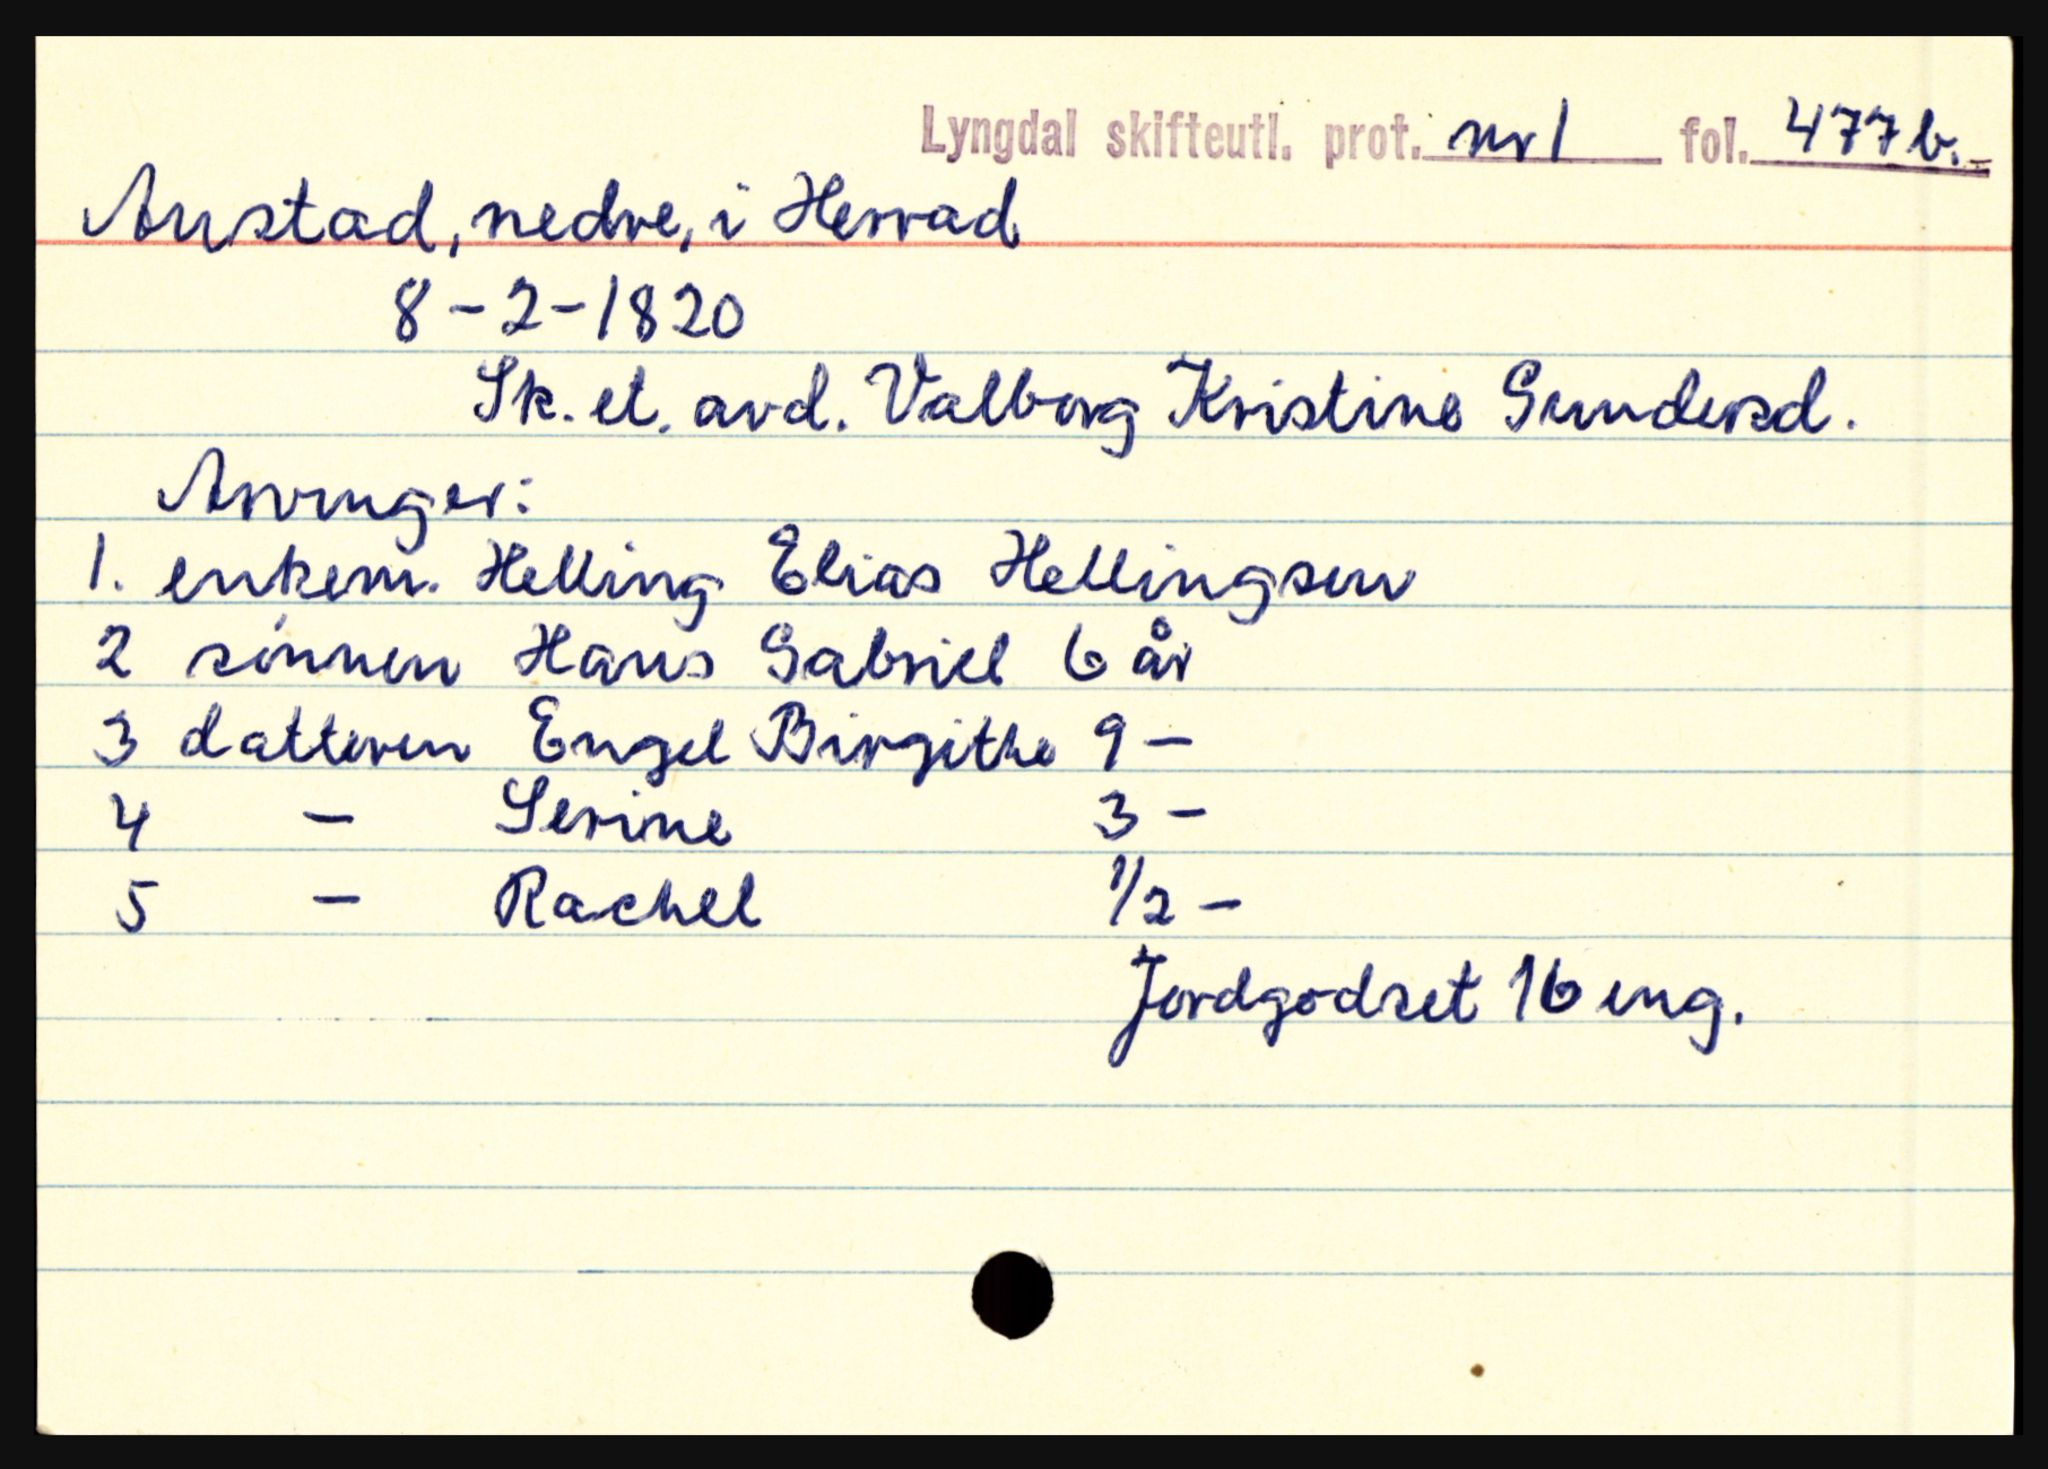 Lyngdal skifteutl. prot. nr 1 fol. 477 b.
Austad, nedre, i Herrad
8-2-1820
Sk. et. avd. Valborg Kristine Gundersd.
Arvinger:
1. enkem. Helling Elias Hellingsen
2 sønnen Hans Gabriel 6 år
3 datteren Engel Birgithe 9 -
4 - Serine 3 -
5 - Rachel 1/2 -
Jordgodset 16 eng.